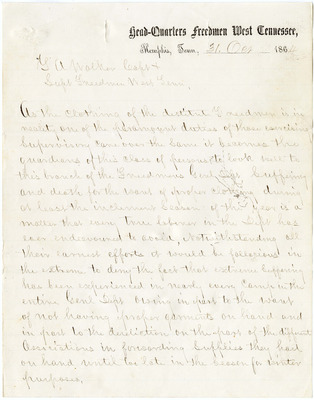 Head-Quarters Freedmen West Tennessee,
Memphis, Tenn, 31. 186
T. A. Walker Capt &
Supt Freedmen West Tenn,
As the clothing of the destitute Freedmen is in
reality one of the paramount duties of those exercising
Supervisory care over the same it becomes the
guardians of this class of persons to look well to
this branch of the Freedmens Genl Supt Suffering
and death for the want of proper clothing during
at least the inclement season of the year is a
matter that every true laborer in the Dept has
ever endeavoured to avoid, Notwithstanding all
their earnest efforts it would be folly in
the extreme to deny the fact that extreme suffering
has been experienced in nearly every Camp in the
entire Genl Supt Owing in part to the want
of not having proper garments on hand and
in part to the dereliction on the part of the different
Associations in forwarding Supplies they had
on hand until too late in the season for Winter
purposes.